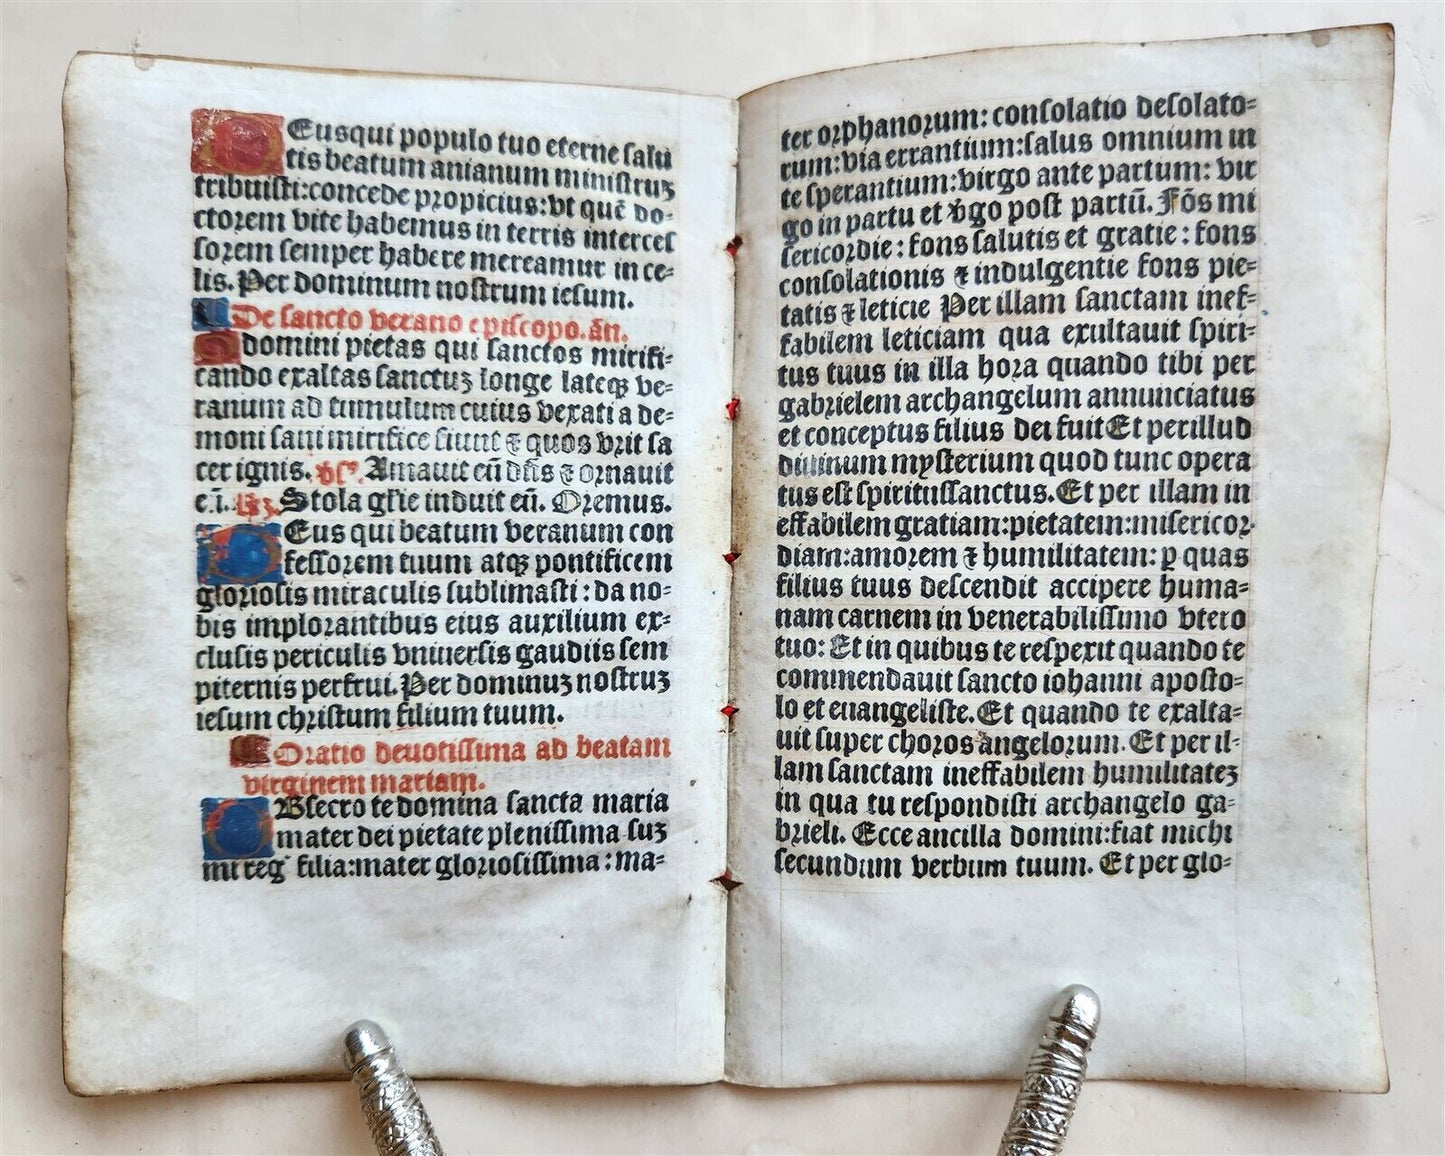 Deusqui populo tuo eterne salu
tis beatum anianum ministruʒ
tribuisti:concede propicius:vt quē do-
ctorem vite habemus in terris interces
sorem semper habere mereamur in ce=
lis. Per dominum nostrum iesum.
De sancto verano episcopo. añ.
O domini pietas qui sanctos mirifi-
cando exaltas sanctuʒ longe lateqꝫ ve=
ranum ad tumulum cuius vexati a de=
moni sani mirifice fiunt ⁊ quos vrit sa
cer ignis. v̄s. Amauit eū dn̄s ⁊ ornauit
eū. Rʒ. Stola glīe induit eū. Oremus.
Deus qui beatum veranum con
fessorem tuum atqꝫ pontificem
gloriosis miraculis sublimasti : da no-
bis implorantibus eius auxilium ex=
clusis periculis vniuersis gaudiis sem
piternis perfrui. Per dominuʒ nostruʒ
iesum christum filium tuum.
Oratio deuotissima ad beatam
virginem mariam.
OBsecro te domina sancta maria
mater dei pietate plenissima suʒ
mi regꝰ filia:mater gloriosissima : ma=
ter orphanorum: consolatio desolato=
rum:via errantium:salus omnium in
te sperantium:virgo ante partum: vir
go in partu et v̄go post partū. Fōs mi
sericordie : fons salutis et gratie : fons
consolationis ⁊ indulgentie fons pie=
tatis ⁊ leticie Per illam sanctam inef=
fabilem leticiam qua exultauit spiri-
tus tuus in illa hora quando tibi per
gabrielem archangelum annunciatus
et conceptus filius dei fuit Et per illud
diuinum mysterium quod tunc opera
tus est spiritussanctus. Et per illam in
effabilem gratiam:pietatem:misericor-
diam:amorem ⁊ humilitatem: ꝑ quas
filius tuus descendit accipere huma=
nam carnem in venerabilissimo vtero
tuo: Et in quibus te respexit quando te
commendauit sancto iohanni aposto=
lo et euangeliste. Et quando te exalta=
uit super choros angelorum. Et per il-
lam sanctam ineffabilem humilitateʒ
in qua tu respondisti archangelo ga=
brieli. Ecce ancilla domini:fiat michi
secundum verbum tuum. Et per glo-